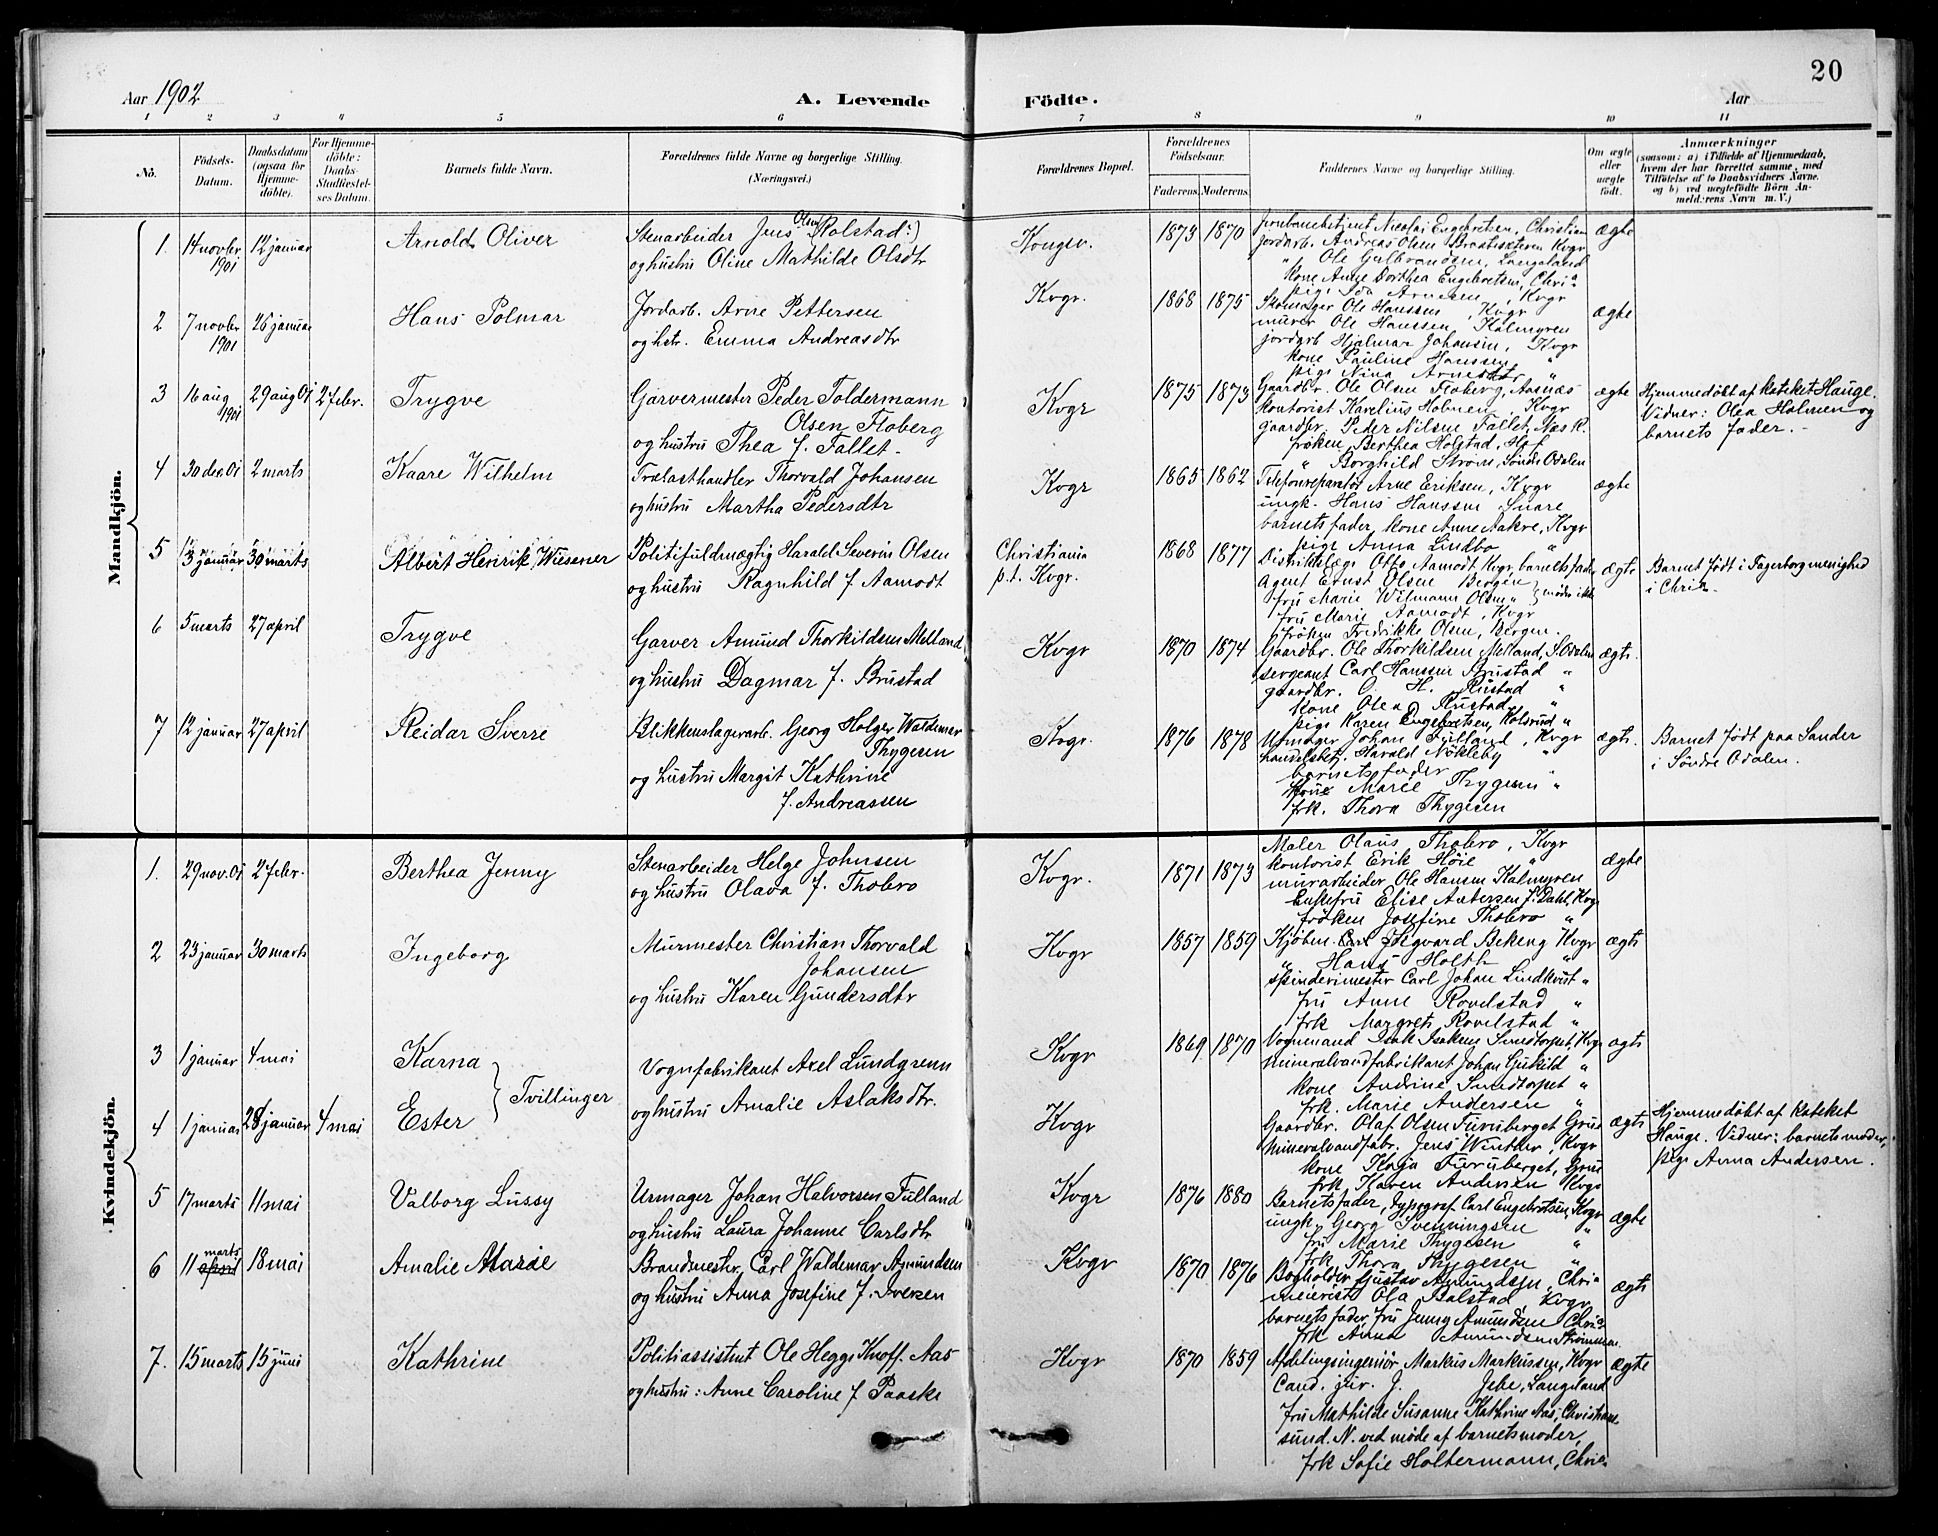 20
Aar 1902
A. Levende Födte.
Aar
1 2 3 4 5 6 7 8 9 10 11
No.
Födsels-Datum.
Daabsdatum (ogsaa for Hjemme-döbte).
For Hjemme-döbte: Daabs-Stadfæstel-ses Datum.
Barnets fulde Navn.
Forældrenes fulde Navne og borgerlige Stilling. (Næringsvei.)
Forældrenes Bopæl.
Forældrenes Födselsaar.
Faderens. Moderens.
Faddernes Navne og borgerlige Stilling.
Om ægte eller uægte födt.
Anmærkninger
(saasom: a) i Tilfælde af Hjemmedaab,
hvem der har forrettet samme, med
Tilföielse af to Daabsvidners Navne,
og b) ved uægtefödte Börn An-
meld:rens Navn m. V.)
Mandkjön.
1. 14 novbr. 1901 12 januar Arnold Oliver
Stenarbeider Jens Olsen (Rolstad:)
og hustru Oline Mathilde Olsdtr
Kongsv. 1873 1870
Jernbanebetjent Nicolai Engebretsen, Christian
jordarb. Andreas Olsen Kvgr
" Ole Gulbrandsen, Langeland
kone Anne Dorthea Engebretsen, Chria
pige Ida Arnesen, Kvgr
ægte
2 7 novbr 1901 26 januar Hans Polmar
Jordarb. Arne Pettersen
og hstr. Emma Andreasdtr
Kvgr. 1868 1875
Skomager Ole Hanssen, Kvgr
murer Ole Hanssen, Kalmyren
jordarb Hjalmar Johansen, Kvgr
kone Pauline Hanssen "
pige Nina Arnesdtr "
ægte
3 16 aug 1901 29 aug 01 2 febr. Trygve
Garvermester Peder Toldermann
Olsen Floberg
og hustru Thea f. Fallet
Kvgr 1875 1873
Gaardbr. Ole Olsen Floberg, Aasnæs
kontorist Karelius Holmen, Kvgr
gaardbr. Peder Nilsen Fallet, Næs R.
frøken Berthea Holstad,
" Borghild Strøm, Søndre Odalen
ægte
Hjemmedøbt af kateket Hauge.
Vidner: Olea Holmen og
barnets fader.
4 30 dec. 01 2 marts Kaare Wilhelm
Trælasthandler Thorvald Johansen
og hustru Martha Pedersdtr
Kvgr 1865 1862
Telefonreparatør Arne Eriksen, Kvgr
ungk. Hans Hanssen, Snare
barnets fader, kone Anne Aakre, Kvgr
pige Anna Lindbo "
ægte
5 13 januar 30 marts Albert Henrik Wiesener
Politifuldmægtig Harald Severin Olsen
og hustru Ragnhild f Aamodt
Christiania
p.t. Kvgr.
1868 1877
Distriktslæge Otto Aamodt Kvgr, barnets fader
Agent Ernst Olsen Bergen
fru Marie Wilmann Olsen " } møder ikke
fru Marie Aamodt, Kvgr
frøken Fredrikke Olsen, Bergen.
ægte
Barnet født i Fagerborg menighed
i Chria.
6 5 marts 27 april Trygve
Garver Amund Thorkildsen Melland
og hustru Dagmar f. Brustad
Kvgr 1870 1874
Gaardbr. Ole Thorkildsen Melland, S. Odalen
sergeant Carl Hanssen Brustad "
gaardbr. O. H. Rustad "
kone Olea Rustad "
pige Karen Engebretsen, Kolsrud "
ægte.
7 12 januar 27 april Reidar Sverre
Blikkenslagerarb. Georg Holger Waldemar
Thygesen
og hustru Margit Kathrine
f. Andreassen
Kvgr. 1876 1878
Urmager Johan Fulland, Kvgr
handelsbetj. Harald Nökleby "
barnets fader "
kone Marie Thygesen "
frk. Thora Thygesen
ægte.
Barnet født paa Sander
i Søndre Odalen.
Kvindekjön.
1. 29 nov. 01 2 febr. Berthea Jenny
Stenarbeider Helge Johnsen
og hustru Olava f. Thobro
Kvgr. 1871 1873
Maler Olaus Thobro, Kvgr
kontorist Erik Høie "
murarbeider Ole Hansen Kalmyren
Enkefru Elise Andersen f. Dahl, Kvgr
frøken Josefine Thobro "
ægte
2 23 januar 30 marts Ingeborg
Murmester Christian Thorvald
Johansen
og hustru Karen Gundersdtr
Kvgr 1857 1859
Kjøbm. Sigvard Bekeng Kvgr
" Hans Holth "
spinderimester Carl Johan Lindkvist "
fru Anne Rovelstad "
frk Margrete Rovelstad "
ægte
3 1 januar 4 mai Karna
4 1 januar 28 januar 4 mai Ester
} Tvillinger
Vognfabrikant Axel Lundgrenn
og hustru Amalie Aslaksdtr.
Kvgr 1869 1870
Vognmand Isak Isaksen Sundtorpet, Kvgr
Mineralvandfabrikant Johan Gjukild "
kone Andrine Sundtorpet "
frk. Marie Andersen "
ægte
Kvgr
Gaardbr. Olaf Olsen Furuberget Grue
Mineralvandfabr. Jens Winther, Kvgr
kone Kaja Furuberget, Grue
frk Karen Andersen Kvgr
ægte
Hjemmedøbt af kateket
Hauge. Vidner: barnets moder,
pige Anna Andersen.
5 17 marts 11 mai Valborg Lussy
Urmager Johan Halvorsen Fulland
og hustru Laura Johanne Carlsdtr
Kvgr 1876 1880
Barnets fader, typograf Carl Engebretsen, Kvgr
ungk. Georg Svenningsen "
fru Marie Thygesen "
frk Thora Thygesen "
ægte
6 11 marts 18 mai Amalie Marie
Brandmester Carl Waldemar Amundsen
og hustru Anna Josefine f. Iversen
Kvgr 1870 1876
Bogholder Gustav Amundsen, Chria
meierist Ola Balstad, Kvgr
barnets fader, fru Jenny Amundsen Chria
frk Anna Amundsen Strømmen
ægte
7. 15 marts 15 juni Kathrine
Politiassistent Ole Hegge Knoff Aas
og hustru: Anne Caroline f. Paaske
Kvgr 1870 1859
Afdelingsingeniør Markus Markussen, Kvgr
Cand. jur. J. Jebe, Langeland
fru Mathilde Susanne Kathrine Aas, Christian-
sund. N. ved møde af barnets moder,
frk Sofie Holtermann, Chria
ægte